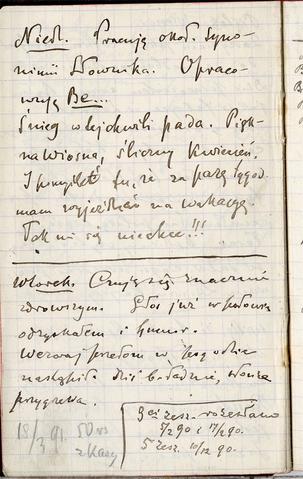 Niedz. Pracuję okoł. Syno-
nimu Słownika. Opraco-
wuję Be...
Śnieg w tej chwili pada. Pięk-
na wiosna, śliczny kwiecień.
I pomyśleć tu, że za parę tygod.
mam wyjeżdżać na wakacye.
Tak mi się niechce!!!
Wtorek. Czuję się znacznie
zdrowszym. Głos już w połowie
odzyskałem i humor.
Wczoraj przełom w pogodzie
nastąpił. Dziś ładnie, słońce
przygrzewa.
18/3 91. 50 rs
z kasy
3ci zesz. rozesłano
5/2 90 i 17/2 90.
5 zesz. 10/12 90.